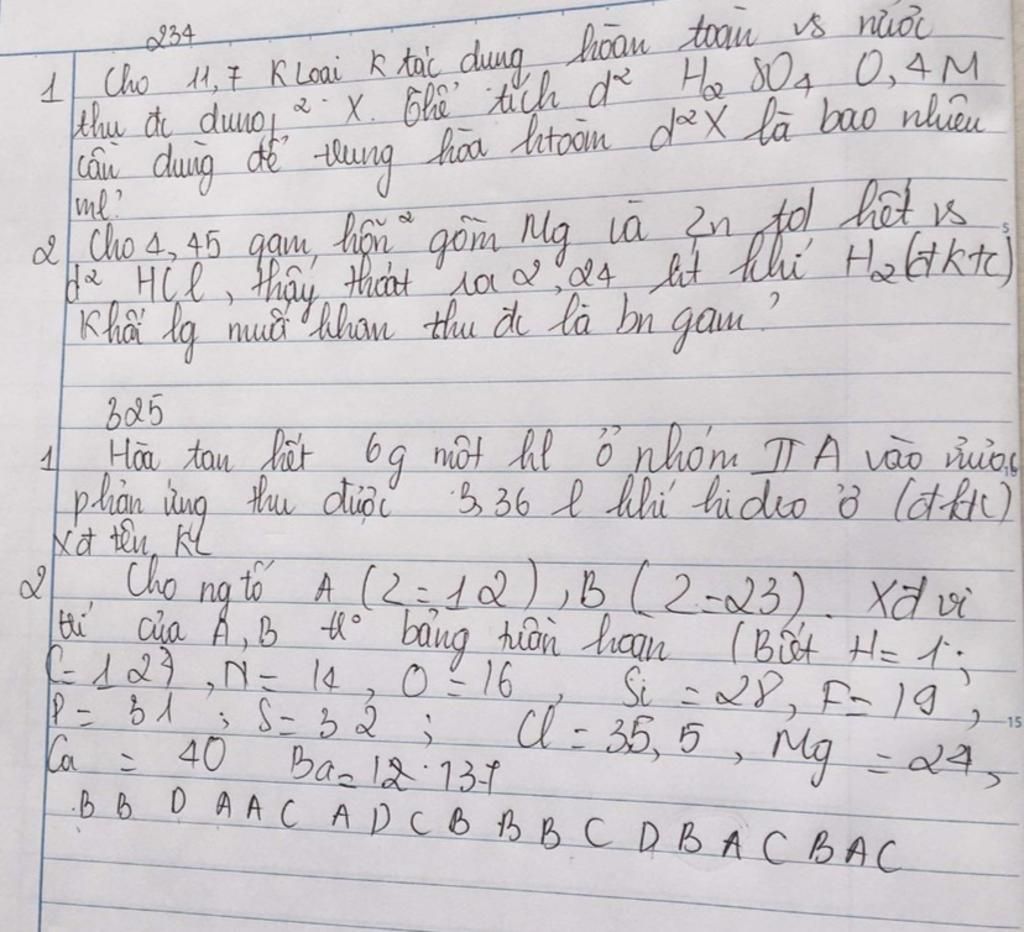 234
1 Cho 11,7 K Loai K tác dung hoàn toàn vs nước
thu đc dung² X. Thể tích d² H₂SO₄ 0,4M
cần dùng để trung hòa htoàn d²X là bao nhiêu
ml?
2 Cho 4,45 gam, hỗn² gồm Mg và Zn td hết vs
d² HCl, thấy thoát ra 2,24 lít khí H₂(đktc)
Khối lg muối khan thu đc là bn gam?
325
1 Hòa tan hết 6g một kl ở nhóm II A vào nước
phản ứng thu được 3,36 l khí hidro ở (đktc)
Xđ tên KL
2 Cho ng tố A (Z=12), B (Z=23). Xđ vi
trí của A, B tr° bảng tuần hoan (Biết H=1;
C=127, N=14, O=16, Si=28, F=19,
P=31; S=32; Cl=35,5, Mg=24,
Ca = 40 Ba=12.137
B B D A A C A D C B B B C D B A C B A C